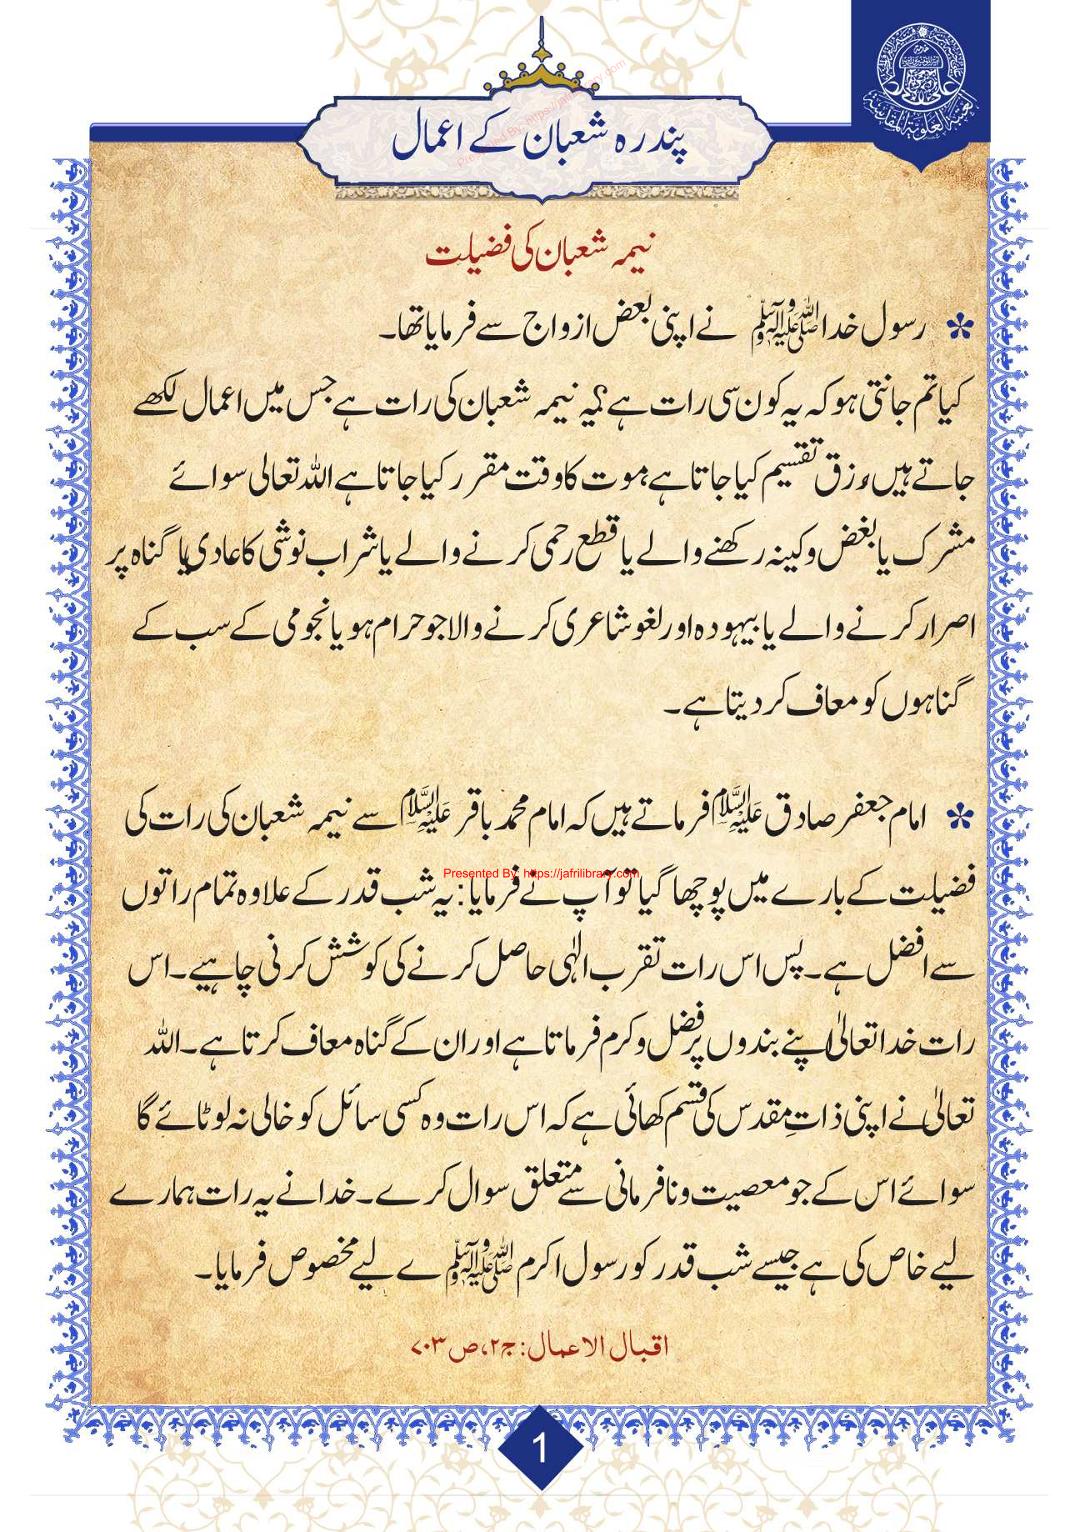 پندرہ شعبان کے اعمال
نیمہ شعبان کی فضیلت
رسول خدا ﷺ نے اپنی بعض ازواج سے فرمایا تھا۔
کیا تم جانتی ہو کہ یہ کون سی رات ہے؟ یہ نیمہ شعبان کی رات ہے جس میں اعمال لکھے
جاتے ہیں، رزق تقسیم کیا جاتا ہے، موت کا وقت مقرر کیا جاتا ہے اللہ تعالی سوائے
مشرک یا بغض و کینہ رکھنے والے یا قطع رحمی کرنے والے یا شراب نوشی کا عادی یا گناہ پر
اصرار کرنے والے یا بیہودہ اور لغو شاعری کرنے والا جو حرام ہو یا نجومی کے سب کے
گناہوں کو معاف کر دیتا ہے۔
امام جعفر صادق علیہ السلام فرماتے ہیں کہ امام محمد باقر علیہ السلام سے نیمہ شعبان کی رات کی
Presented By: https://jafrilibrary.com
فضیلت کے بارے میں پوچھا گیا تو آپ نے فرمایا: یہ شب قدر کے علاوہ تمام راتوں
سے افضل ہے۔ پس اس رات تقرب الٰہی حاصل کرنے کی کوشش کرنی چاہیے۔ اس
رات خدا تعالیٰ اپنے بندوں پر فضل و کرم فرماتا ہے اور ان کے گناہ معاف کرتا ہے۔ اللہ
تعالیٰ نے اپنی ذاتِ مقدس کی قسم کھائی ہے کہ اس رات وہ کسی سائل کو خالی نہ لوٹائے گا
سوائے اس کے جو معصیت و نافرمانی سے متعلق سوال کرے۔ خدا نے یہ رات ہمارے
لیے خاص کی ہے جیسے شب قدر کو رسول اکرم ﷺ ے لیے مخصوص فرمایا۔
اقبال الاعمال: ج۲، ص۷۰۳
1